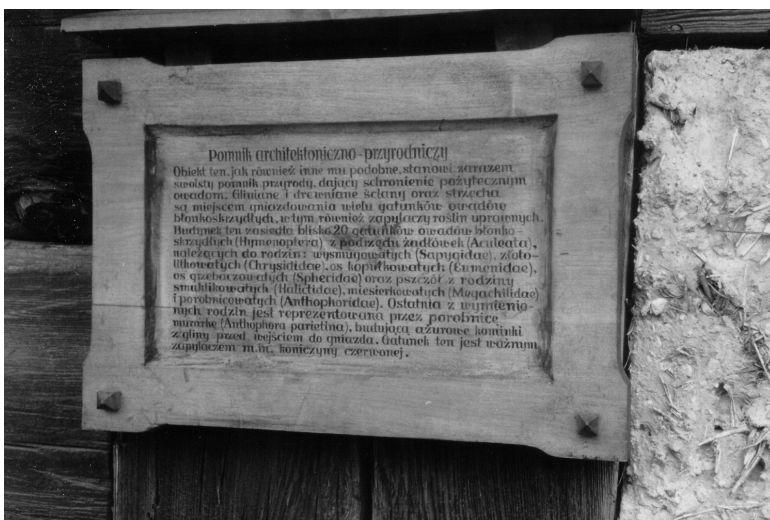 Pomnik architektoniczno-przyrodniczy
Obiekt ten, jak również inne mu podobne, stanowi zarazem
swoisty pomnik przyrody, dający schronienie pożytecznym
owadom. Gliniane i drewniane ściany oraz strzecha
są miejscem gniazdowania wielu gatunków owadów
błonkoskrzydłych, w tym również zapylaczy roślin uprawnych.
Budynek ten zasiedla blisko 20 gatunków owadów błonko-
skrzydłych (Hymenoptera) z podrzędu żądłówek (Aculeata),
należących do rodzin: wysmugowatych (Sapygidae), złoto-
litkowatych (Chrysididae), os kopułkowatych (Eumenidae),
os grzebaczowatych (Sphecidae) oraz pszczół z rodziny
smuklikowatych (Halictidae), miesierkowatych (Megachilidae)
i porobnicowatych (Anthophoridae). Ostatnia z wymienio-
nych rodzin jest reprezentowana przez porobnicę
murarkę (Anthophora parietina), budującą ażurowe kominki
z gliny przed wejściem do gniazda. Gatunek ten jest ważnym
zapylaczem m.in. koniczyny czerwonej.